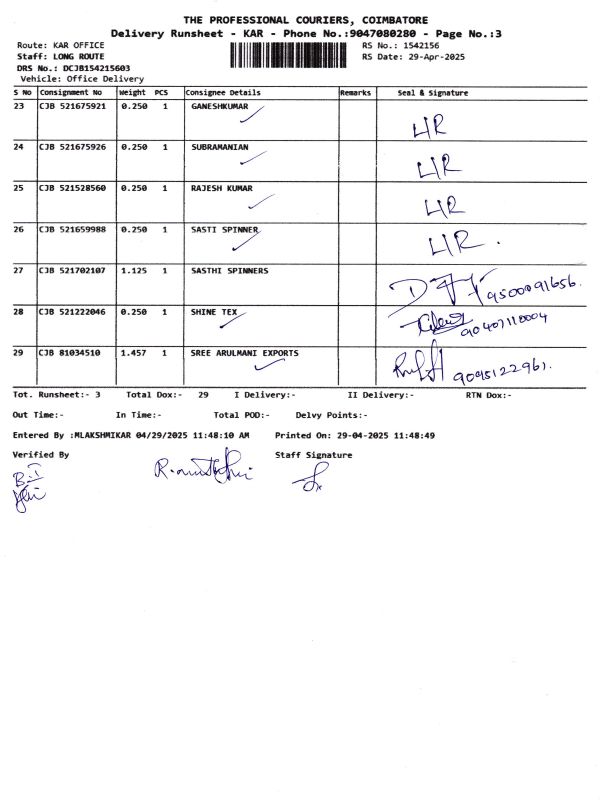 THE PROFESSIONAL COURIERS, COIMBATORE
Delivery Runsheet - KAR - Phone No.:9047080280 - Page No.:3
Route: KAR OFFICE RS No.: 1542156
Staff: LONG ROUTE RS Date: 29-Apr-2025
DRS No.: DCJB154215603
Vehicle: Office Delivery
S No Consignment No Weight PCS Consignee Details Remarks Seal & Signature
23 CJB 521675921 0.250 1 GANESHKUMAR LIR
24 CJB 521675926 0.250 1 SUBRAMANIAN LIR
25 CJB 521528560 0.250 1 RAJESH KUMAR LIR
26 CJB 521659988 0.250 1 SASTI SPINNER LIR.
27 CJB 521702107 1.125 1 SASTHI SPINNERS 9500091656.
28 CJB 521222046 0.250 1 SHINE TEX 90407110004
29 CJB 81034510 1.457 1 SREE ARULMANI EXPORTS 9095122961.
Tot. Runsheet:- 3 Total Dox:- 29 I Delivery:- II Delivery:- RTN Dox:-
Out Time:- In Time:- Total POD:- Delvy Points:-
Entered By :MLAKSHMIKAR 04/29/2025 11:48:10 AM Printed On: 29-04-2025 11:48:49
Verified By Staff Signature